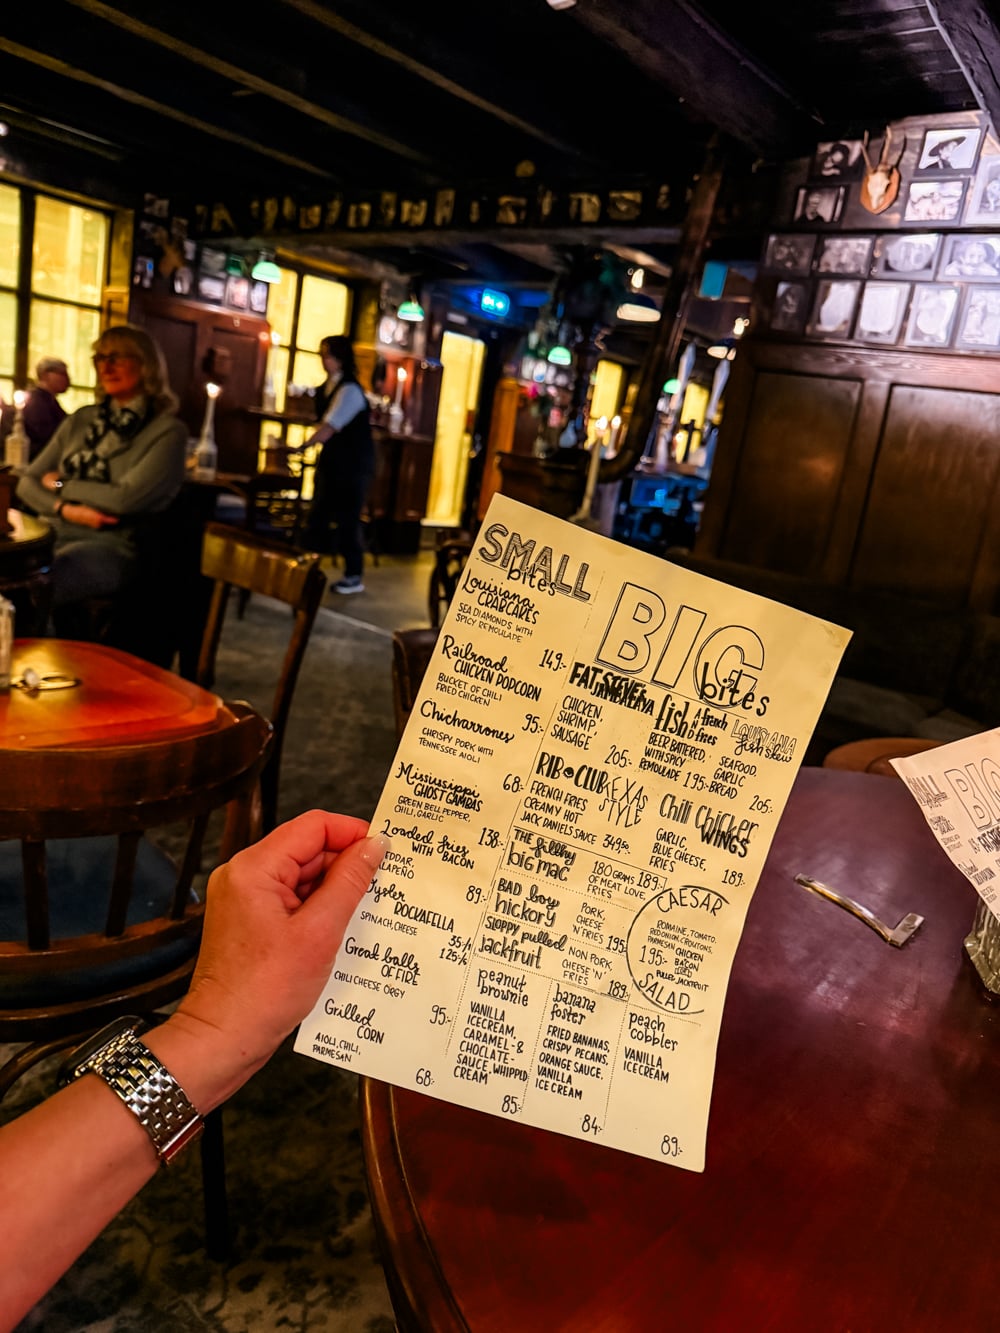 SMALL
bites
Louisiana
CRABCAKES
SEA DIAMONDS WITH
SPICY REMOULADE
149:-
Railroad
CHICKEN POPCORN
BUCKET OF CHILI
FRIED CHICKEN
95:-
Chicharrones
CHRISPY PORK WITH
TENNESSEE AIOLI
68:-
Mississippi
GHOST GAMBAS
GREEN BELL PEPPER,
CHILI, GARLIC
138:-
Loaded fries
WITH BACON
EDDAR,
ALAPEÑO
89:-
Oyster
ROCKAFELLA
SPINACH, CHEESE
35/1
125/4
Great balls
OF FIRE
CHILI CHEESE ORGY
95:-
Grilled
CORN
AIOLI, CHILI,
PARMESAN
68:-
BIG
bites
FAT STEVE'S
JAMBALAYA
CHICKEN,
SHRIMP,
SAUSAGE
205:-
fish AND french fries
BEER BATTERED,
WITH SPICY
REMOULADE 195:-
LOUISIANA
fish stew
SEAFOOD,
GARLIC
BREAD
205:-
RIB CLUB TEXAS
STYLE
FRENCH FRIES
CREAMY HOT
JACK DANIELS SAUCE 349:-
Chili Chicken
WINGS
GARLIC,
BLUE CHEESE,
FRIES
189:-
THE filthy
big mac
180 GRAMS
OF MEAT LOVE,
FRIES
189:-
BAD boy
hickory
PORK,
CHEESE
'N' FRIES 195:-
SLOPPY pulled
jackfruit
NON PORK
CHEESE 'N'
FRIES 189:-
CAESAR
ROMAINE, TOMATO,
RED ONION, CROUTONS,
PARMESAN CHICKEN
195:- BACON
PULLED JACKFRUIT
SALAD
peanut
brownie
VANILLA
ICECREAM,
CARAMEL- &
CHOCLATE-
SAUCE, WHIPPED
CREAM
85:-
banana
foster
FRIED BANANAS,
CRISPY PECANS,
ORANGE SAUCE,
VANILLA
ICE CREAM
84:-
peach
cobbler
VANILLA
ICECREAM
89:-
SMALL
BIG